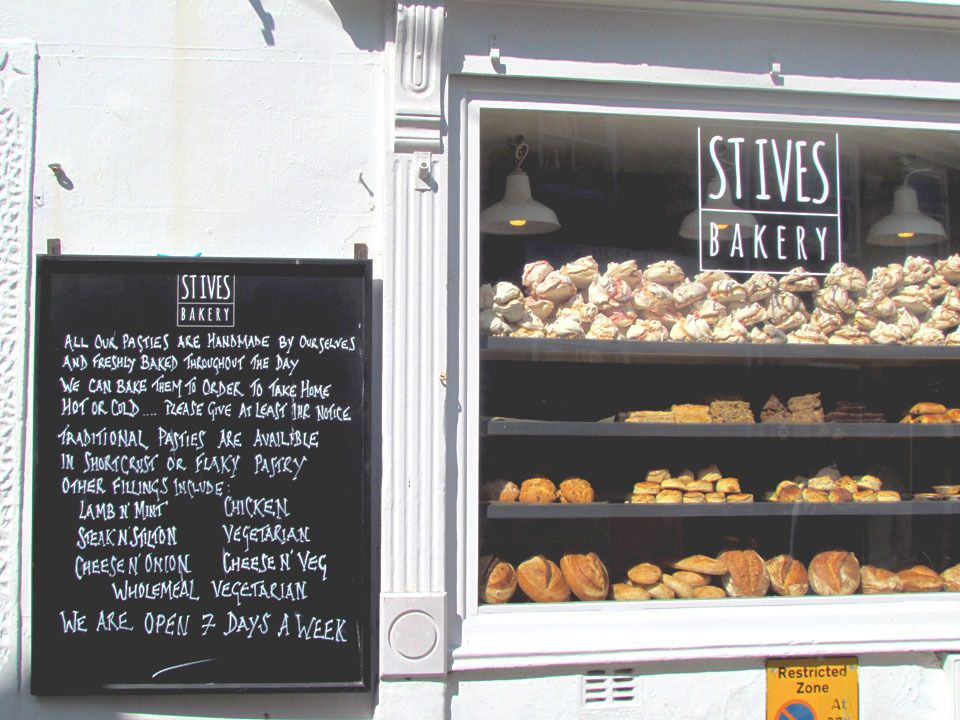 ST IVES
BAKERY
ALL OUR PASTIES ARE HANDMADE BY OURSELVES
AND FRESHLY BAKED THROUGHOUT THE DAY
WE CAN BAKE THEM TO ORDER TO TAKE HOME
HOT OR COLD .... PLEASE GIVE AT LEAST 1HR NOTICE
TRADITIONAL PASTIES ARE AVAILIBLE
IN SHORTCRUST OR FLAKY PASTRY
OTHER FILLINGS INCLUDE:
LAMB N' MINT CHICKEN
STEAK N' STILTON VEGETARIAN
CHEESE N' ONION CHEESE N' VEG
WHOLEMEAL VEGETARIAN
WE ARE OPEN 7 DAYS A WEEK
ST IVES
BAKERY
Restricted
Zone
At